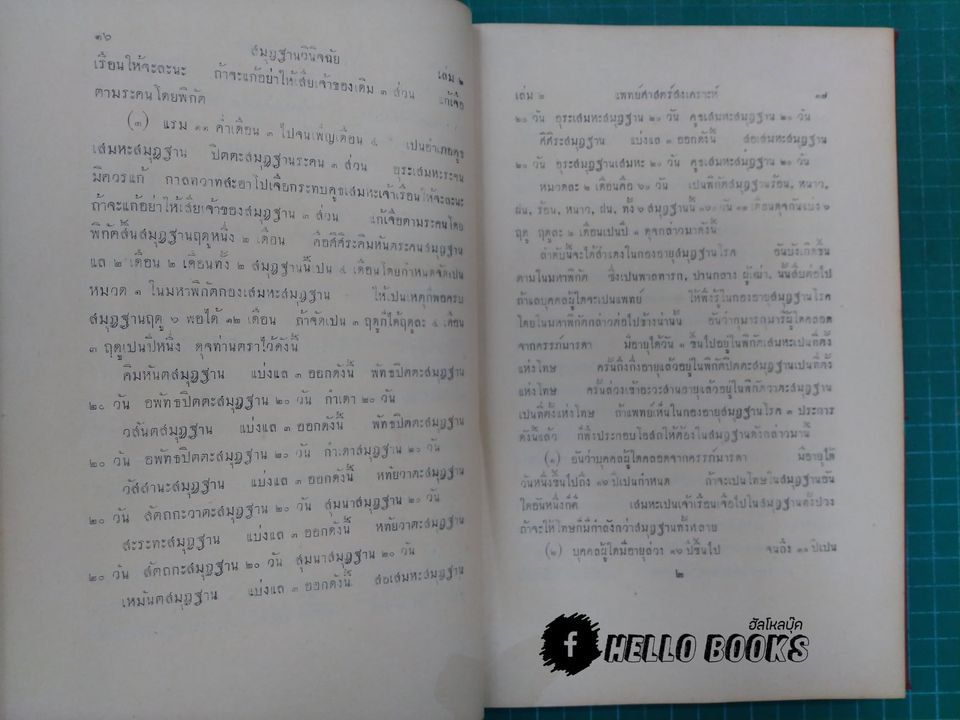 ๑๖
สมุฏฐานวินิจฉัย
เล่ม ๒
เรือนให้จะละนะ ถ้าจะแก้อย่าให้เสียเจ้าของเดิม ๓ ส่วน แก้เจือ
ตามระคนโดยพิกัด
(๓) แรม ๑๑ ค่ำเดือน ๓ ไปจนเพ็ญเดือน ๔ เป็นอำเภอคูธ
เสมหะสมุฏฐาน ปิตตะสมุฏฐานระคน ๓ ส่วน อุระเสมหะระคน
มิควรแก้ กาลทวาทสะอาโปเจือกระทบคูธเสมหะเจ้าเรือนให้จะละนะ
ถ้าจะแก้อย่าให้เสียเจ้าของสมุฏฐาน ๓ ส่วน แก้เจือตามระคนโดย
พิกัดสิ้นสมุฏฐานฤดูหนึ่ง ๒ เดือน คือศิศิระคิมหันตระคนสมุฏฐาน
แล ๒ เดือน ๒ เดือนทั้ง ๒ สมุฏฐานนี้เปน ๔ เดือนโดยกำหนดจัดเปน
หมวด ๑ ในมหาพิกัดกองเสมหะสมุฏฐาน ให้เปนเหตุภิพอครบ
สมุฏฐานฤดู ๖ พอได้ ๑๒ เดือน ถ้าจัดเปน ๓ ฤดูก็ได้ฤดูละ ๔ เดือน
๓ ฤดูเปนปีหนึ่ง ดุจท่านตราไว้ดังนี้
คิมหันตสมุฏฐาน แบ่งแล ๓ ออกดังนี้ พัทธปิตตสมุฏฐาน
๒๐ วัน อพัทธปิตตะสมุฏฐาน ๒๐ วัน กำเดา ๒๐ วัน
วสันตสมุฏฐาน แบ่งแล ๓ ออกดังนี้ พัทธปิตตะสมุฏฐาน
๒๐ วัน อพัทธปิตตะสมุฏฐาน ๒๐ วัน กำเดาสมุฏฐาน ๒๐ วัน
วัสสานะสมุฏฐาน แบ่งแล ๓ ออกดังนี้ หทัยวาตะสมุฏฐาน
๒๐ วัน สัตถกะวาตะสมุฏฐาน ๒๐ วัน สุมนาสมุฏฐาน ๒๐ วัน
สะระทะสมุฏฐาน แบ่งแล ๓ ออกดังนี้ หทัยวาตะสมุฏฐาน
๒๐ วัน สัตถกะสมุฏฐาน ๒๐ วัน สุมนาสมุฏฐาน ๒๐ วัน
เหมันตสมุฏฐาน แบ่งแล ๓ ออกดังนี้ สอเสมหะสมุฏฐาน
เล่ม ๒ แพทย์ศาสตร์สงเคราะห์ ๑๗
๒๐ วัน อุระเสมหะสมุฏฐาน ๒๐ วัน คูธเสมหะสมุฏฐาน ๒๐ วัน
ศิศิระสมุฏฐาน แบ่งแล ๓ ออกดังนี้ สอเสมหะสมุฏฐาน
๒๐ วัน อุระสมุฏฐานเสมหะ ๒๐ วัน คูธเสมหะสมุฏฐาน ๒๐ วัน
หมวดละ ๒ เดือนคือ ๖๐ วัน เปนพิกัดสมุฏฐานร้อน, หนาว,
ฝน, ร้อน, หนาว, ฝน, ทั้ง ๖ สมุฏฐานนี้ วัน ๑๒ เดือนดุจกันแบ่ง ๖
ฤดู ฤดูละ ๒ เดือนเปนปี ๑ ดุจกล่าวมาดังนี้
ลำดับนี้จะได้สำแดงในกองอายุสมุฏฐานโรค อันบังเกิดขึ้น
ตามในมหาพิกัด ซึ่งเปนพาลทารก, ปานกลาง ผู้เฒ่า, นั้นสืบต่อไป
ถ้าแลบุคคลผู้ใดจะเปนแพทย์ ให้พึงรู้ในกองอายุสมุฏฐานโรค
โดยในมหาพิกัดกล่าวต่อไปข้างน่านั้น อันว่ากุมารกุมารีผู้ใดคลอด
จากครรภ์มารดา มีอายุได้วัน ๑ ขึ้นไปอยู่ในพิกัดเสมหะเปนที่ตั้ง
แห่งโทษ ครั้นถึงกึ่งอายุแล้วอยู่ในพิกัดปิตตะสมุฏฐานเปนที่ตั้ง
แห่งโทษ ครั้นล่วงเข้าอะวะสานอายุแล้วอยู่ในพิกัดวาตะสมุฏฐาน
เปนที่ตั้งแห่งโทษ ถ้าแพทย์เห็นในกองอายุสมุฏฐานโรค ๓ ประการ
ดังนี้แล้ว ก็พึงประกอบโอสถให้ต้องในสมุฏฐานดังกล่าวมานี้
(๑) อันว่าบุคคลผู้ใดคลอดจากครรภ์มารดา มีอายุได้
วันหนึ่งขึ้นไปถึง ๑๖ ปีเปนกำหนด ถ้าจะเปนโทษในสมุฏฐานอัน
ใดอันหนึ่งก็ดี เสมหะเปนเจ้าเรือนเจือไปในสมุฏฐานทั้งปวง
ถ้าจะให้โทษก็มีกำลังกว่าสมุฏฐานทั้งหลาย
(๒) บุคคลผู้ใดมีอายุล่วง ๑๖ ปีขึ้นไป จนถึง ๓๐ ปีเปน
๒
ฮัลโหลบุ๊ค
f HELLO BOOKS